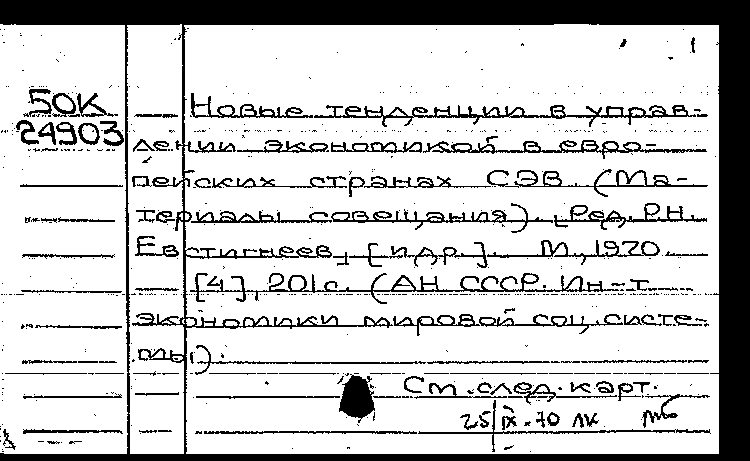 50К
24903
Новые тенденции в управ-
лении экономикой в евро-
пейских странах СЭВ. (Ма-
териалы совещания). [Ред. Р.Н.
Евстигнеев] [и др.]. М., 1970.
[4], 201с. (АН СССР. Ин-т
экономики мировой соц. систе-
мы).
См. след. карт.
25/IX-70 ЛК